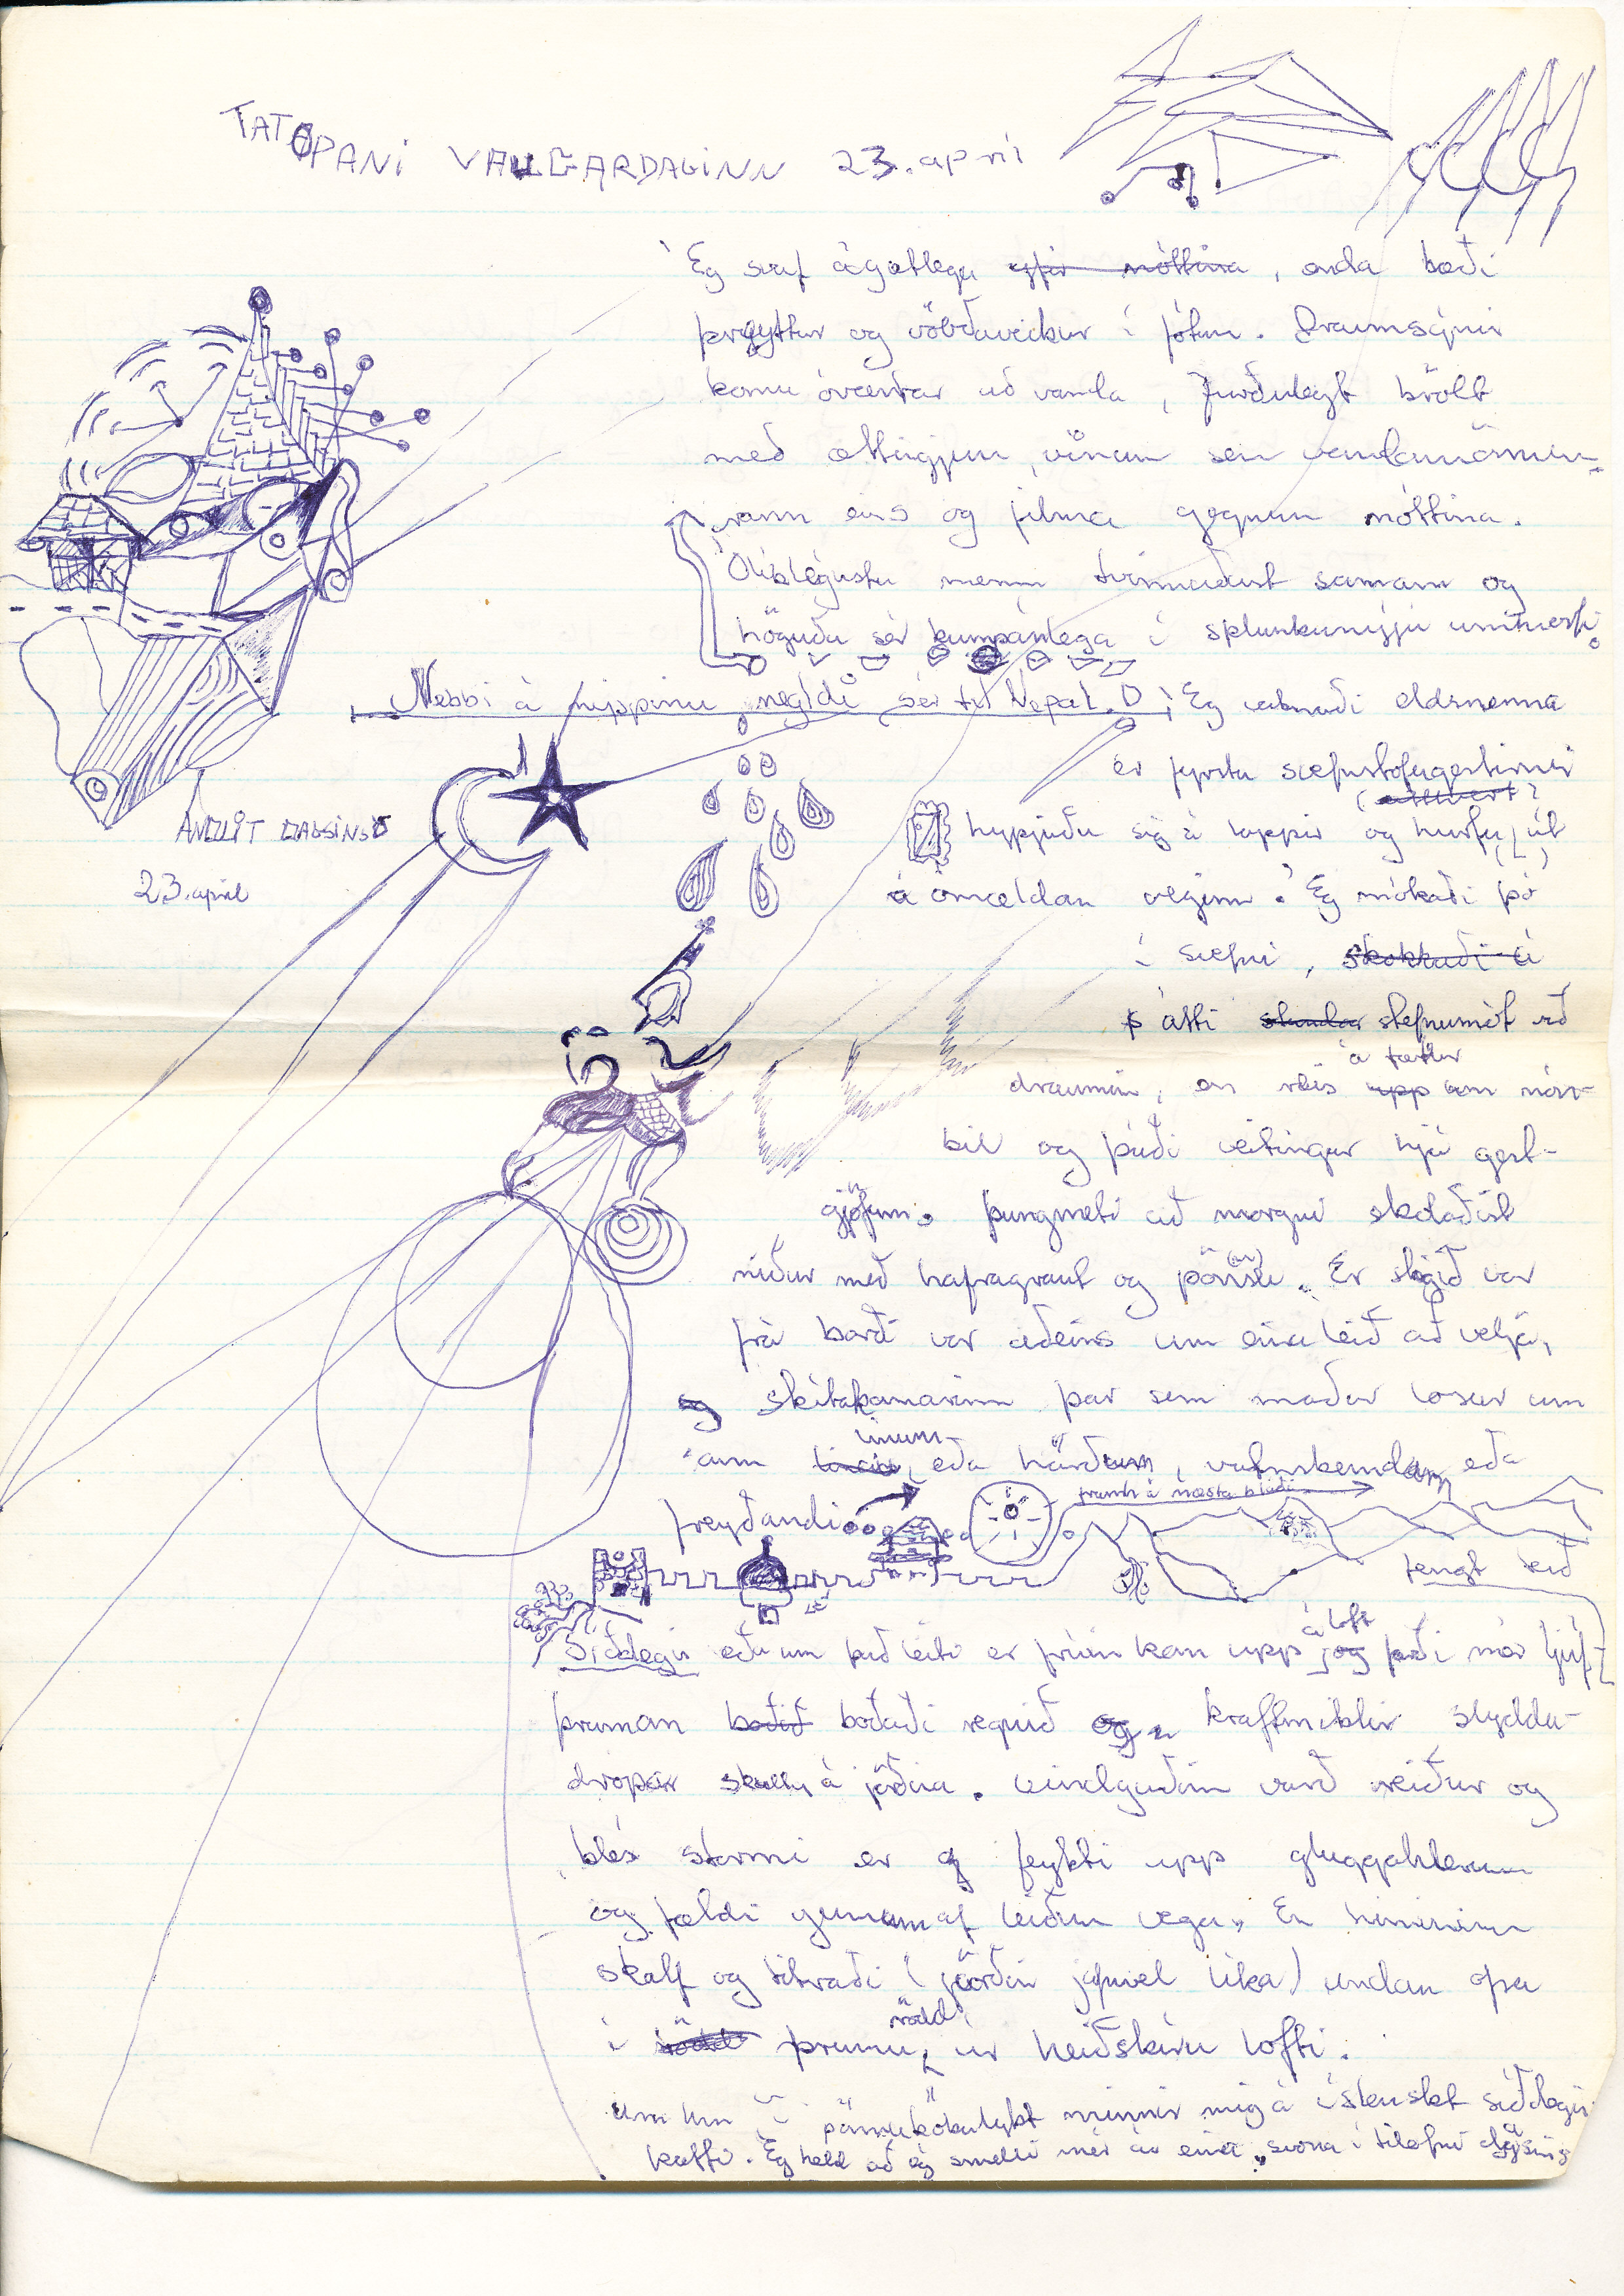 TATOPANI VALGARDAGINN 23. apríl
Ég svaf ágætlega yfir nóttina, enda bæði
þreyttur og vöðvaveikur í fótum. Draumsýnir
komu óvæntar að vanda, furðulegt brölt
með ættingjum, vinum sem vandamönnum
rann eins og filma gegnum nóttina.
Ólíklegustu menn tvinnuðust saman og
höguðu sér kumpánlega í splunkunýju umhverfi.
Nebbi á hippinu negldi sér til Nepal. Ég vaknaði eldsnemma
er fyrstu svefnstofugestirnir
hypjuðu sig á lappir og hurfu út
á ómældan veginn. Ég mókaði þó
í svefni, skokkaði á
átti stefnumót við
á fætur
draumin, en reis upp um níu-
bil og þáði veitingar hjá gest-
gjöfum. Þungmeti að morgni skolaðist
niður með hafragraut og pönnsu. Er stigið var
frá borði var aðeins um eina leið að velja,
og skítakamarinn þar sem maður losar um
linum
eða hörðum, vatnskendum eða
freyðandi
framh á næsta blaði
tengt við
ANDLIT DAGSINS
23. apríl
á loft
Síðdegis eða um það leiti er frúin kom upp og færði mér ljúf-
þruman boðið boðaði regnið og kraftmiklir slyddu-
dropar skullu á jörðina. Vindguðin varð reiður og
blés stormi er feykti upp gluggahlerum
og fældi gemum af leiðum vega. En himininn
skalf og titraði (jörðin jafnvel líka) undan opa
rödd
í þrumu, úr heiðskíru lofti.
Umm pönnukökulykt minnir mig á íslenskt síðdegis
kaffi. Ég held að ég smelli mér á eina, svona í tilefni dagsins